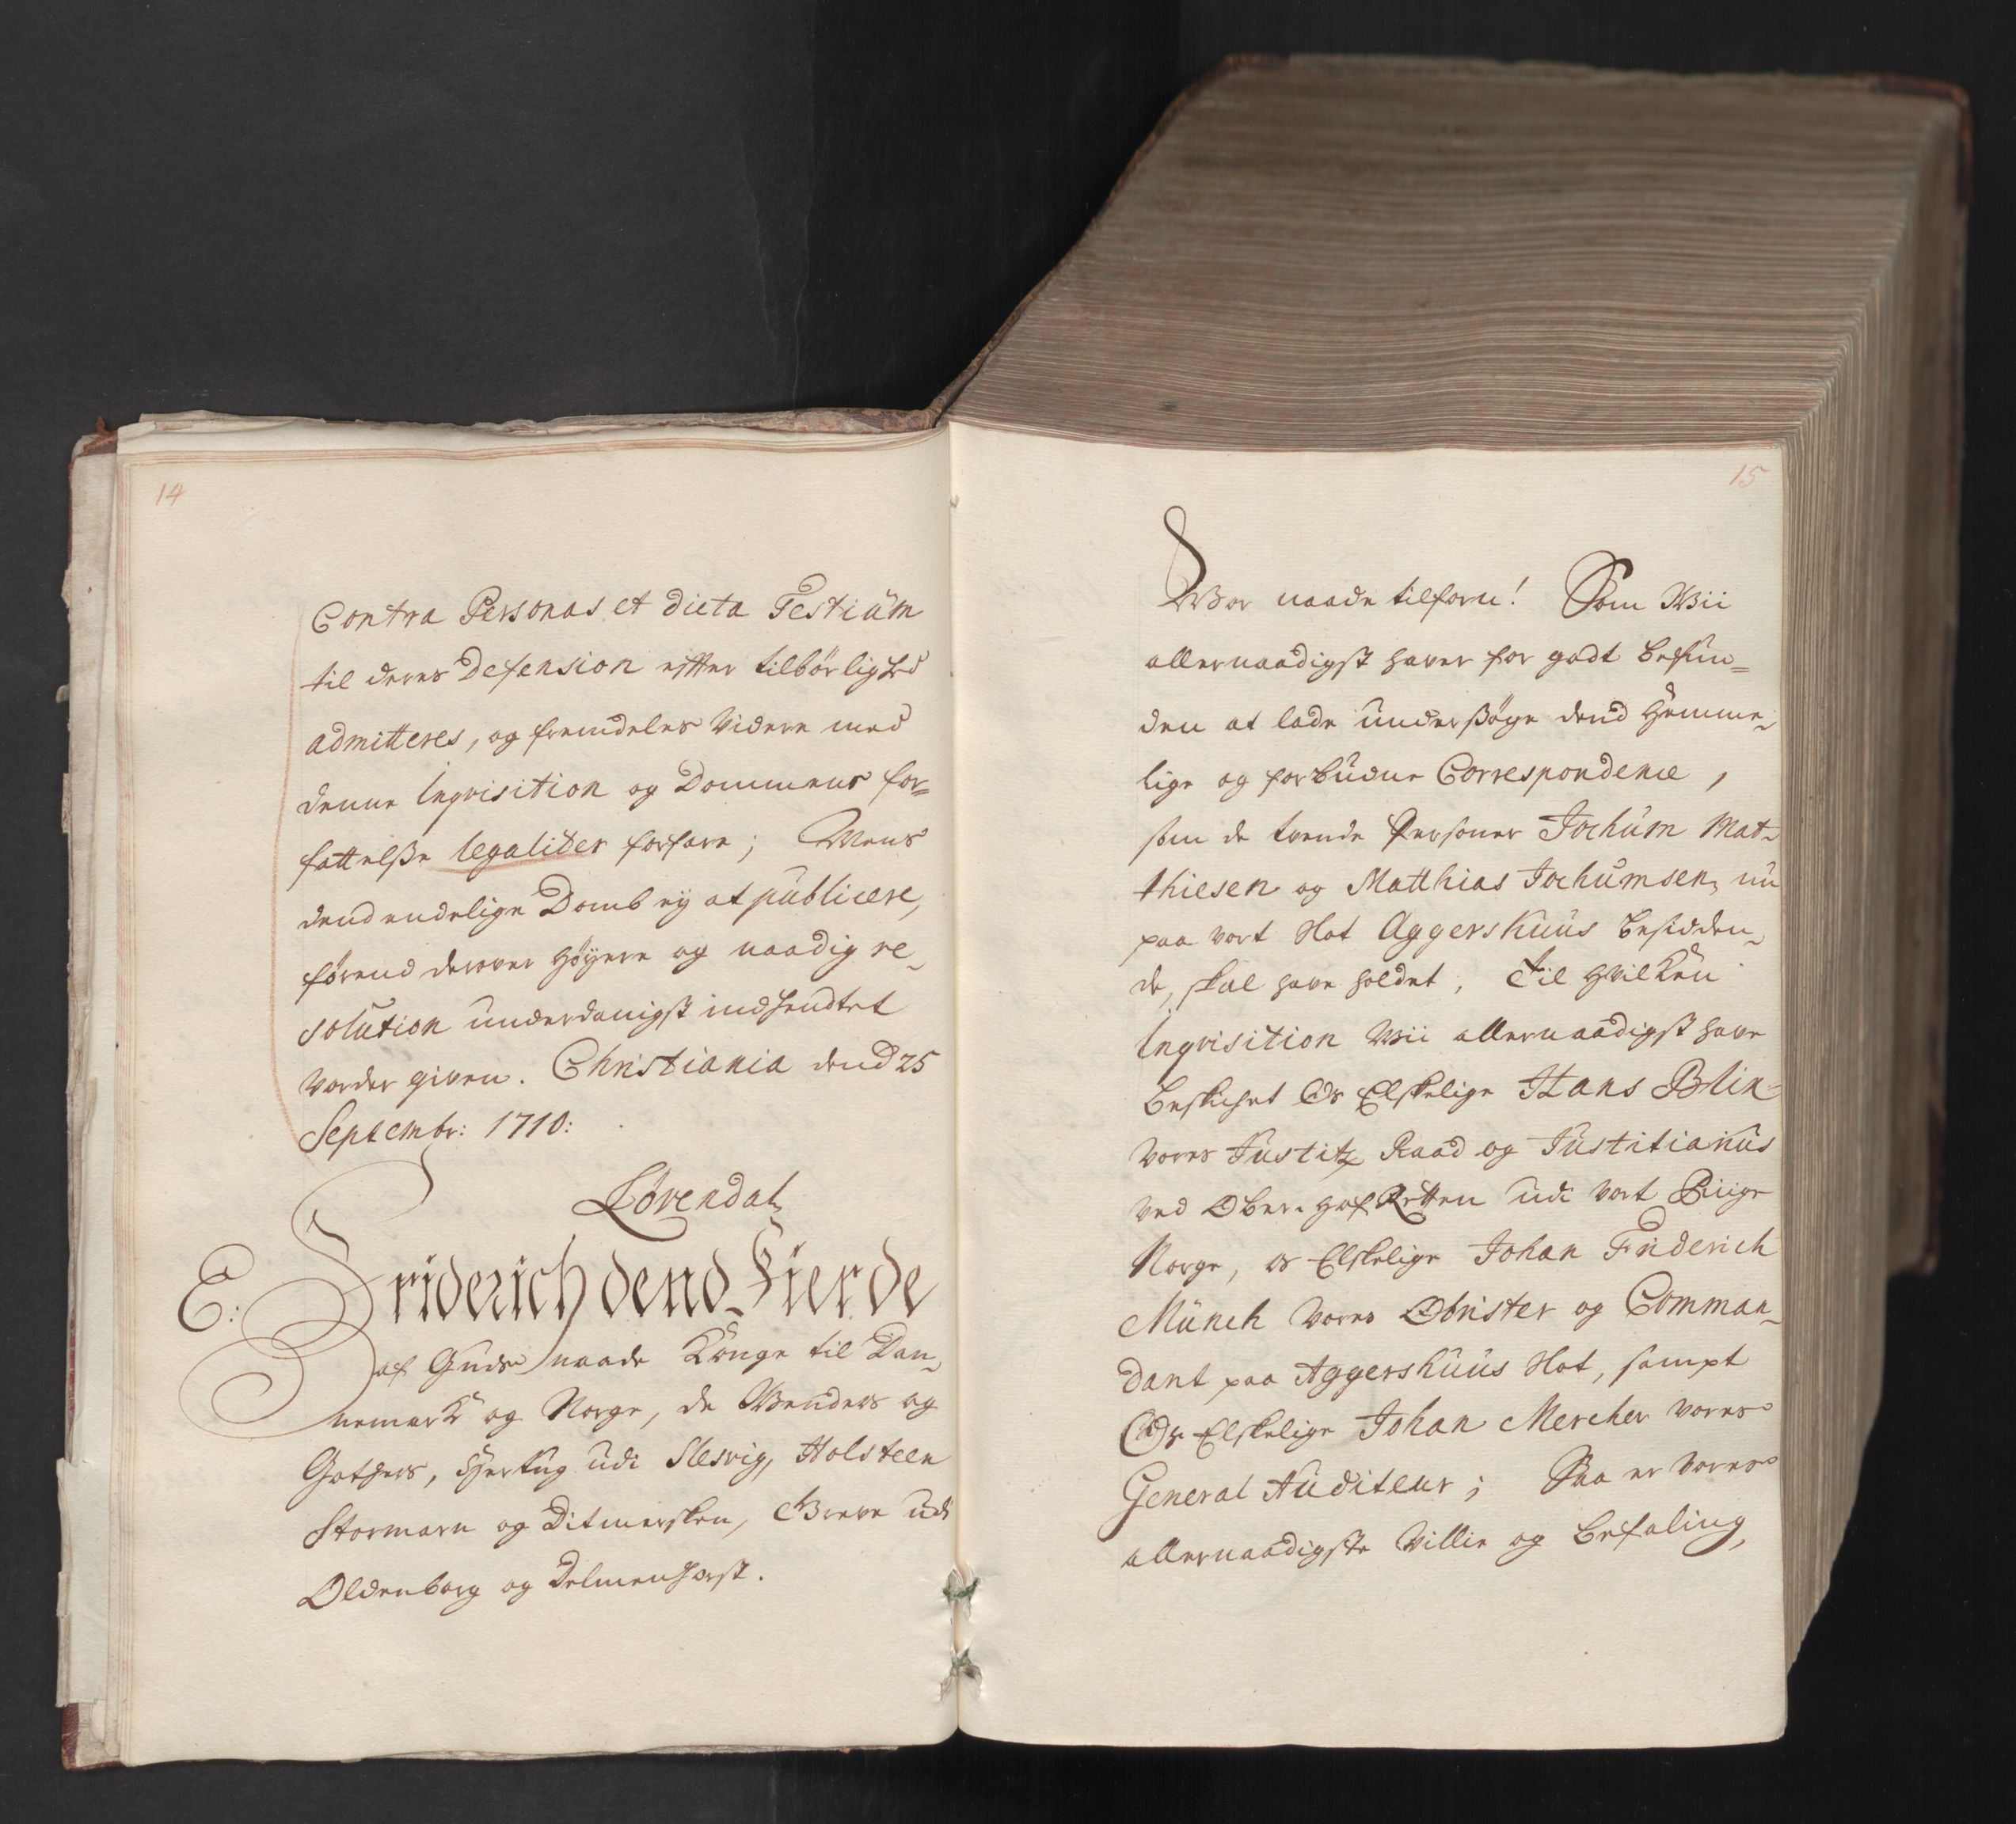 14
Contra Personas et dicta Testium
til deres Defension effter tilbørlighed
admitteres, og fremdeles videre med
denne Inqvisition og Dommens for-
fattelsse legaliter forfare; Mens
dend endelige Domb ey at publicere,
førend derover høyere og naadig re-
solution underdanigst indhendtet
vorder given. Christiania dend 25
Septembr: 1710:
Løvendal
E: Friderich dend Fierde
af Guds naade Konge til Dan-
nemark og Norge, de Wenders og
Gothers, Hertug udi Slesvig, Holsteen
Stormarn og Ditmersken, Greve udi
Oldenborg og Delmenhorst.
15
Wor naade tilforn! Som Wii
allernaadigst haver for godt befun-
den at lade underssøge dend hemme-
lige og forbudne Correspondence,
som de tvende Personer Jochum Mat-
thiesen og Matthias Jochumsen, nu
paa vort Slot Aggershuus besidden-
de, skal have holdet, Til hvilken
Inqvisition Wii allernaadigst have
beskichet Os Elskelige Hans Blix
vores Justitz Raad og Justitiarius
ved Ober-HofRetten udi vort Riige
Norge, os Elskelige Johan Friderich
Münch vores Obrister og Comman-
dant paa Aggershuus Slot, sampt
Os Elskelige Johan Mercher vores
General Auditeur; Saa er vores
allernaadigste Villie og befaling,